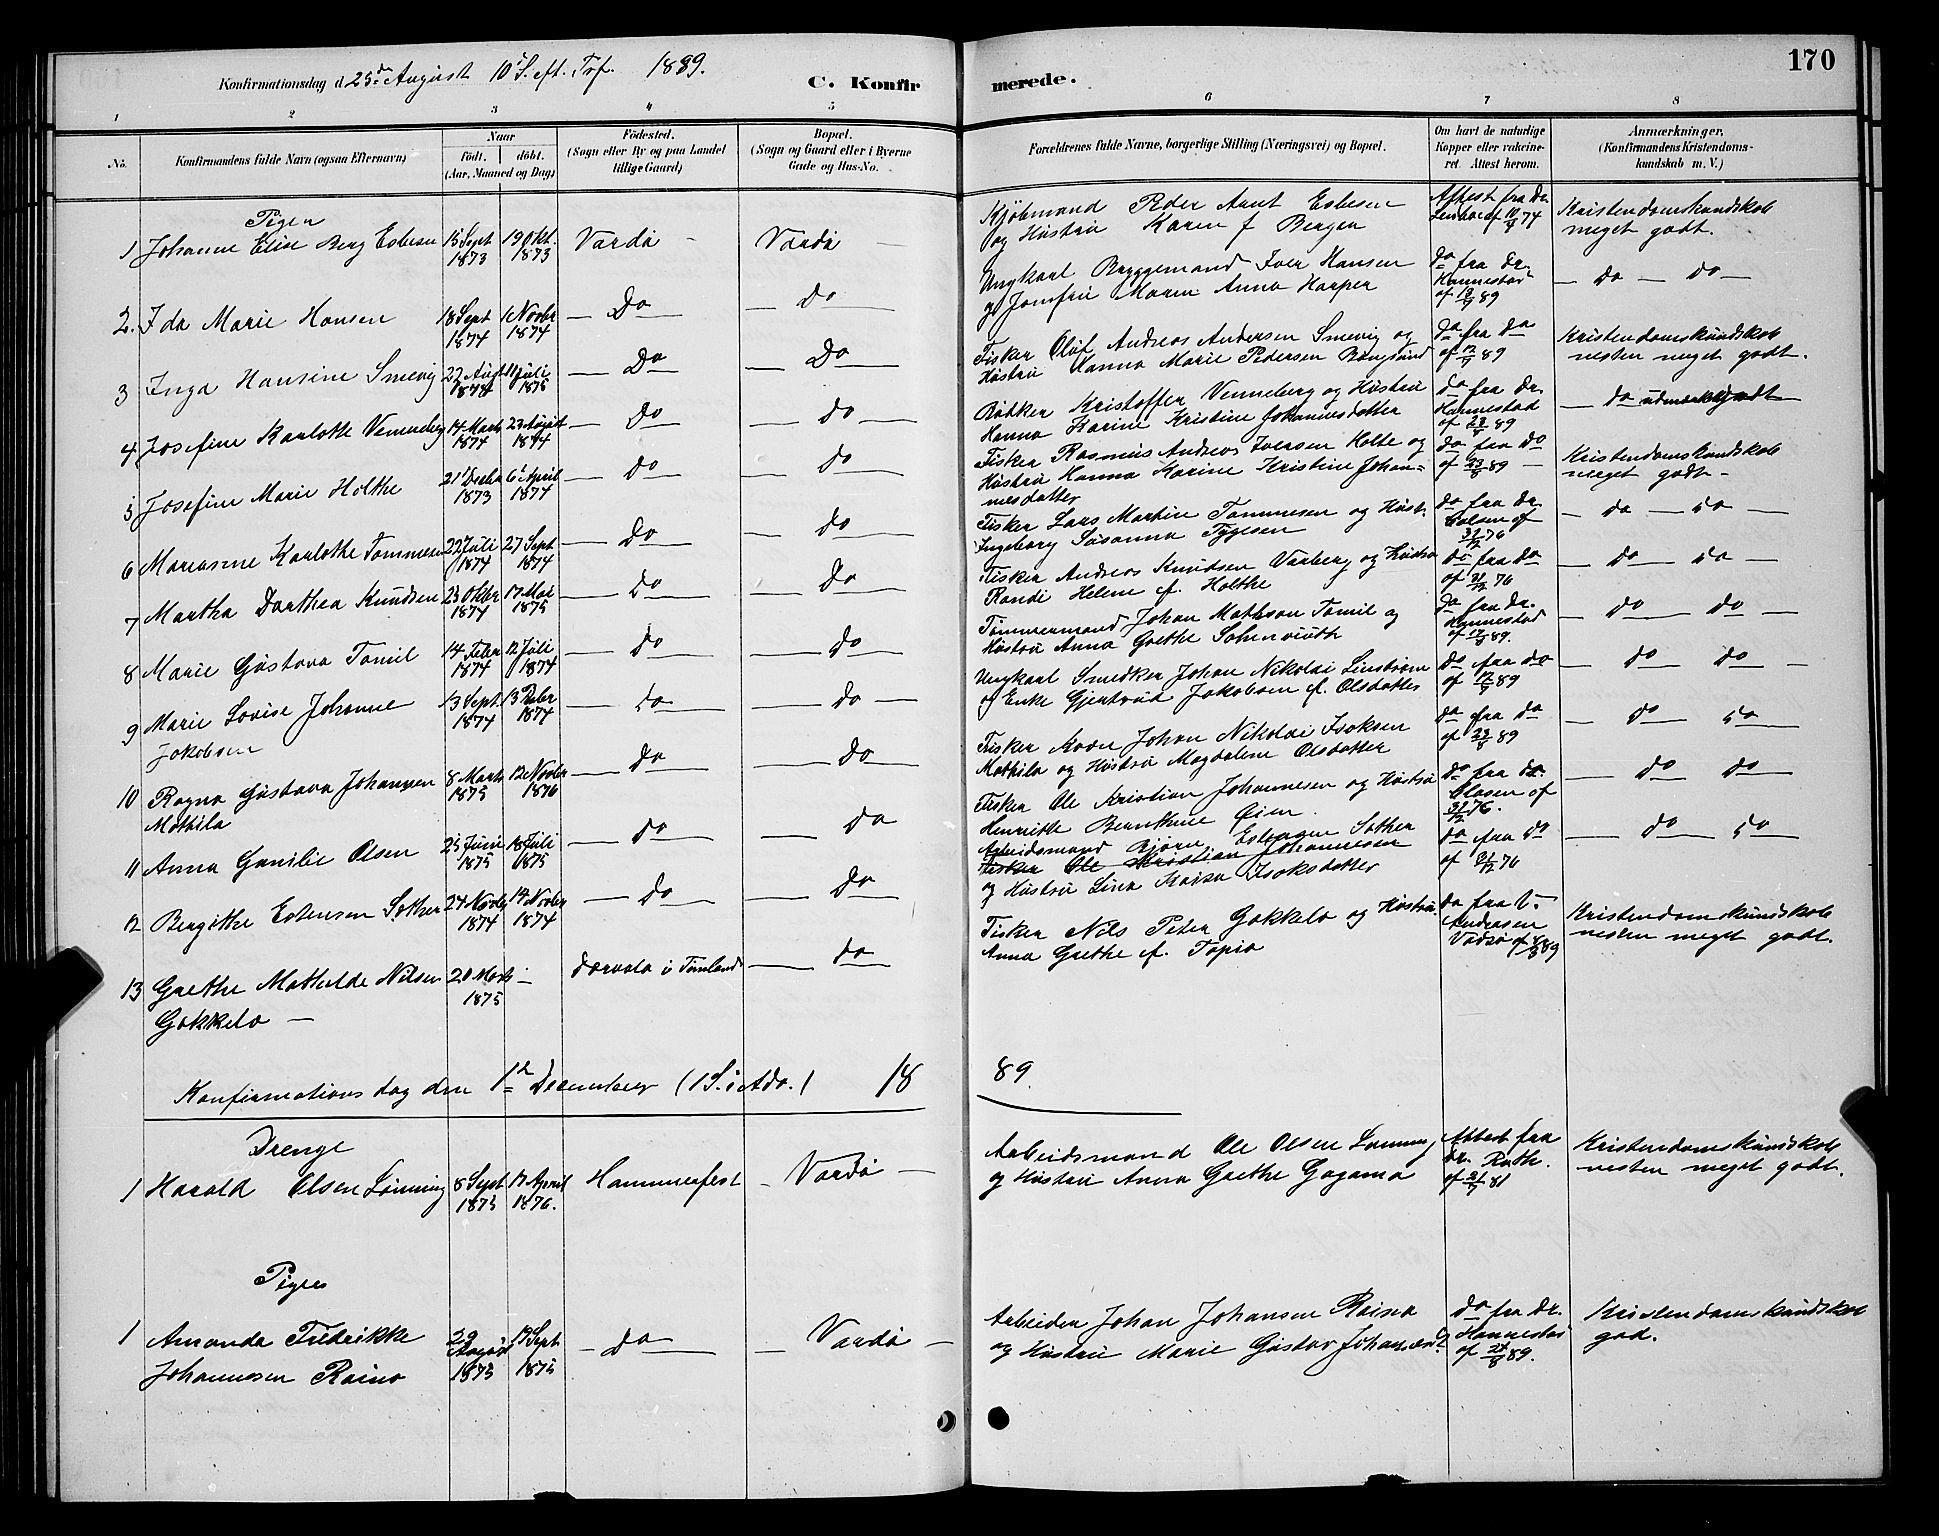 170
Konfirmationsdag d 25de August 10 S. eft. Trf. 1889.
C. Konfirmerede.
1 2 3 4 5 6 7 8
No.
Konfirmandens fulde Navn (ogsaa Efternavn)
Naar
født. døbt.
(Aar, Maaned og Dag)
Födested.
(Sogn eller By og paa Landet
tillige Gaard)
Bopæl.
(Sogn og Gaard eller i Byerne
Gade og Hus-No.
Forældrenes fulde Navne, borgerlige Stilling (Næringsvei) og Bopæl.
Om havt de naturlige
Kopper eller vakcine-
ret Attest herom.
Anmærkninger,
(Konfirmandens Kristendoms-
kundskab m. V.)
Piger
1 Johanne Elise Berg Esbesen 15 Sept 1873 19 Okt. 1873 Vardö - Vardö
Kjöbmand Peder Arnt Esbesen
og Hustru Karen f Bergen
Attest fra Dr.
af 10/9 74
Kristendomskundskab
meget godt.
2. Ida Marie Hansen 18 Sept 1874 1 Novbr 1874 - Do - - Do -
Ungkarl Bryggemand Iver Hansen
og Jomfru Maren Anna Harper
Do fra Dr.
Hannestad
af 12/9 89
- Do - Do -
3 Inga Hansine Smevig 22 August 1874 11 Juli 1875 - Do - - Do -
Fisker Oluf Andreas Andersen Smevig og
Hustru Hanna Marie Pedersen
Do fra Do
af 12/9 89
Kristendomskundskab
nesten meget godt.
4 Josefine Karlotte Venneberg 14 Marts 1874 23 August 1874 - Do - - Do -
Bödker Kristoffer Venneberg og Hustru
Hanna Karine Kristine Johannesdatter
Do fra Dr.
Hannestad
af 23/8 89
- Do udmærket godt
5 Josefine Marie Holthe 21 Decbr 1873 6 April 1874 - Do - - Do -
Fisker Rasmus Andreas Iversen Holte og
Hustru Hanna Karine Kristine Johan=
nesdatter
Do fra Do
af 23/8 89 -
Kristendomskundskab
meget godt -
6 Marianne Karlothe Tommesen 22 Juli 1874 27 Sept 1874 - Do - - Do -
Fisker Lars Martin Tommesen og Hust.
Ingeborg Susanna Tygesen
Do fra Dr.
af
31/12 76
- Do - Do -
7 Martha Dorthea Knudsen 23 Oktbr 1874 17 Mai 1875 - Do - - Do -
Fisker Andreas Knudsen Varberg og Hustru
Randi Helene f. Holthe
Do fra Do
af 31/12 76
- Do Do -
8 Marie Gustava Tomil 14 Febr 1874 12 Juli 1874 - Do - - Do -
Tömmermand Johan Mathison Tomil og
Hustru Anna Grethe
Do fra Dr.
Hannestad
af 12/9 89.
- Do - Do -
9 Marie Lovise Johanne
Jakobsen 13 Sept 1874 13 Decbr 1874 - Do - - Do -
Ungkarl Smedker Johan Nikolai Linström
og Enke Gjertrud Jakobsen f. Olsdatter
Do fra Do
af 12/9 89
- Do Do -
10 Ragna Gustava Johansen
Mathila 8 Marts 1875 12 Novbr 1876 - Do - - Do -
Fisker Kvæn Johan Nikolai Isaksen
Mathila og Hustru Magdalene Olsdatter
Do fra Do
af 23/8 89
- Do Do -
11 Anna Gunilie Olsen 25 Juni 1875 18 Juli 1875 - Do - - Do
Fisker Ole Kristian Johannesen og Hustru
Henrikke Bernthine Öien.
Do fra Dr.
Olasen af
31/12 76.
- Do Do -
12 Bergithe Estensen Sother 24 Novbr 1874 14 Novbr 1874 - Do - - Do -
Arbeidsmand Björn Estensen Sother
Fisker Ole Kristian Johannesen
og Hustru Lina Kaisa Isaksdatter
Do fra Do
af 31/12 76
- Do Do -
13 Grethe Mathilde Nilsen
Gakkelo - 20 Marts 1875 - i Finland - Do -
Fisker Nils Peter Gakkelo og Hustru
Anna Grethe f. Tapio
Do fra
Andersen
Vadsö af 8/8 89
Kristendomskundskab
nesten meget godt.
Konfirmationsdag den 1ste December (1 S. i Adv.) 1889.
Drenge
1 Harald Olsen Lönning 8 Sept 1875 17 April 1876. Hammerfest - Vardö -
Arbeidsmand Ole Olsen Lönning
og Hustru Anna Grethe Gagama
Attest fra
Dr. Ruth.
af 21/7 81
Kristendomskundskab
nesten meget godt.
Piger
1 Amanda Fredrikke
Johannesen Raino 29 August 1875 19 Sept 1875 - Do - - Vardö -
Arbeider Johan Johansen Raino
og Hustru Marie Gustav Johansdr
Do fra Dr.
Hannestad
af 24/8 89.
Kristendomskundskab
god.